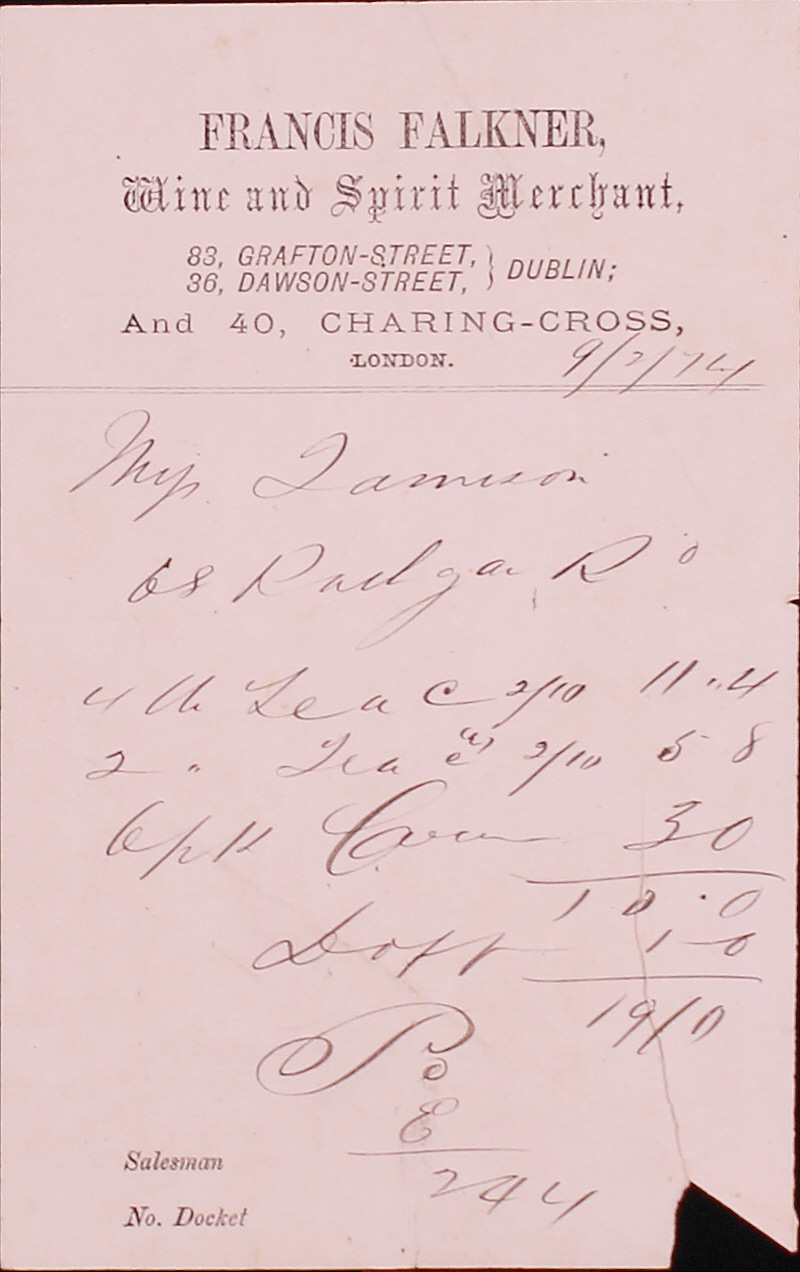 FRANCIS FALKNER,
Wine and Spirit Merchant,
83, GRAFTON-STREET,
36, DAWSON-STREET, } DUBLIN;
And 40, CHARING-CROSS,
LONDON.
9/2/74
Miss Jamison
68 Rd
4 lb Tea C 2/10 11 . 4
2 " Tea 2/10 5 8
6 30
1 0 . 0
1 0
19/0
Pd
E
244
Salesman
No. Docket